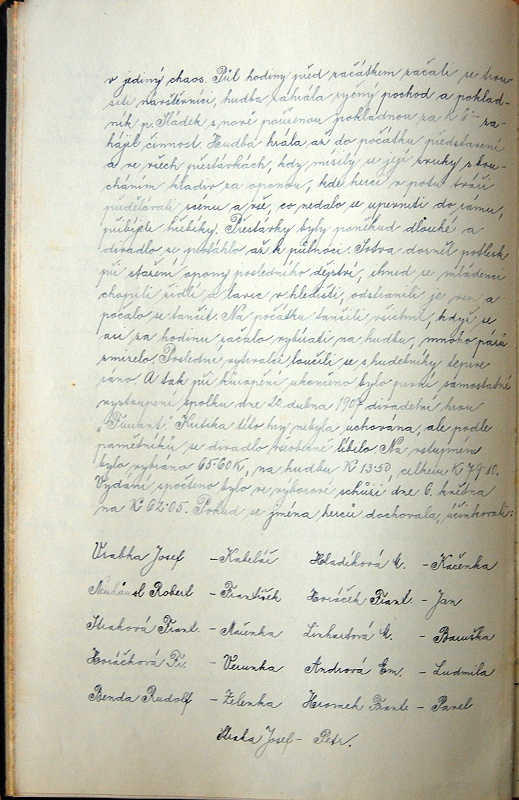 v jediný chaos. Půl hodiny před začátkem začali se trou-
siti návštěvníci, hudba zahrála ryčný pochod a poklad-
ník p. Sládek s nově pořízenou pokladnou za K 6·- za-
hájil činnost. Hudba hrála až do počátku představení
a ve všech přestávkách, kdy mísily se její zvuky s bou-
cháním kladiv za oponou, kde herci v potu tváři
přidělávali scénu a vše, co nedalo se upevniti do rámu,
přibijeli hřebíky. Přestávky byly poněkud dlouhé a
divadlo se protáhlo až k půlnoci. Sotva dozněl potlesk
při stažení opony posledního dějství, ihned se mládenci
chopili židlí a lavic v hledišti, odstranili je ven a
počalo se tančit. Na počátku tančili všichni, když se
asi za hodinu začalo vybírati na hudbu, mnoho párů
zmizelo. Poslední vytrvalci loučili se s hudebníky teprve
ráno. A tak při kuropění ukončeno bylo první samostatné
vystoupení spolku dne 20. dubna 1907 divadelní hrou
Kritika této hry nebyla uchována, ale podle
pamětníků se divadlo všeobecně líbilo. Na vstupném
bylo vybráno 65·60K, na hudbu K 13·50, celkem K 79·10.
Vydání spočteno bylo ve výborové schůzi dne 6. května
na K 62·05. Pokud se jména herců dochovala, účinkovali:
Vrabka Josef - Kubelář Hladíková E. - Kačenka
Robert - František Horáček Frant. - Jan
Straková Frant. - Mařenka Linhartová E. - Baruška
Horáčková Fr. - Verunka Andrová Em. - Ludmila
Benda Rudolf - Zelenka Hromek Frant - Pavel
Josef - Petr.